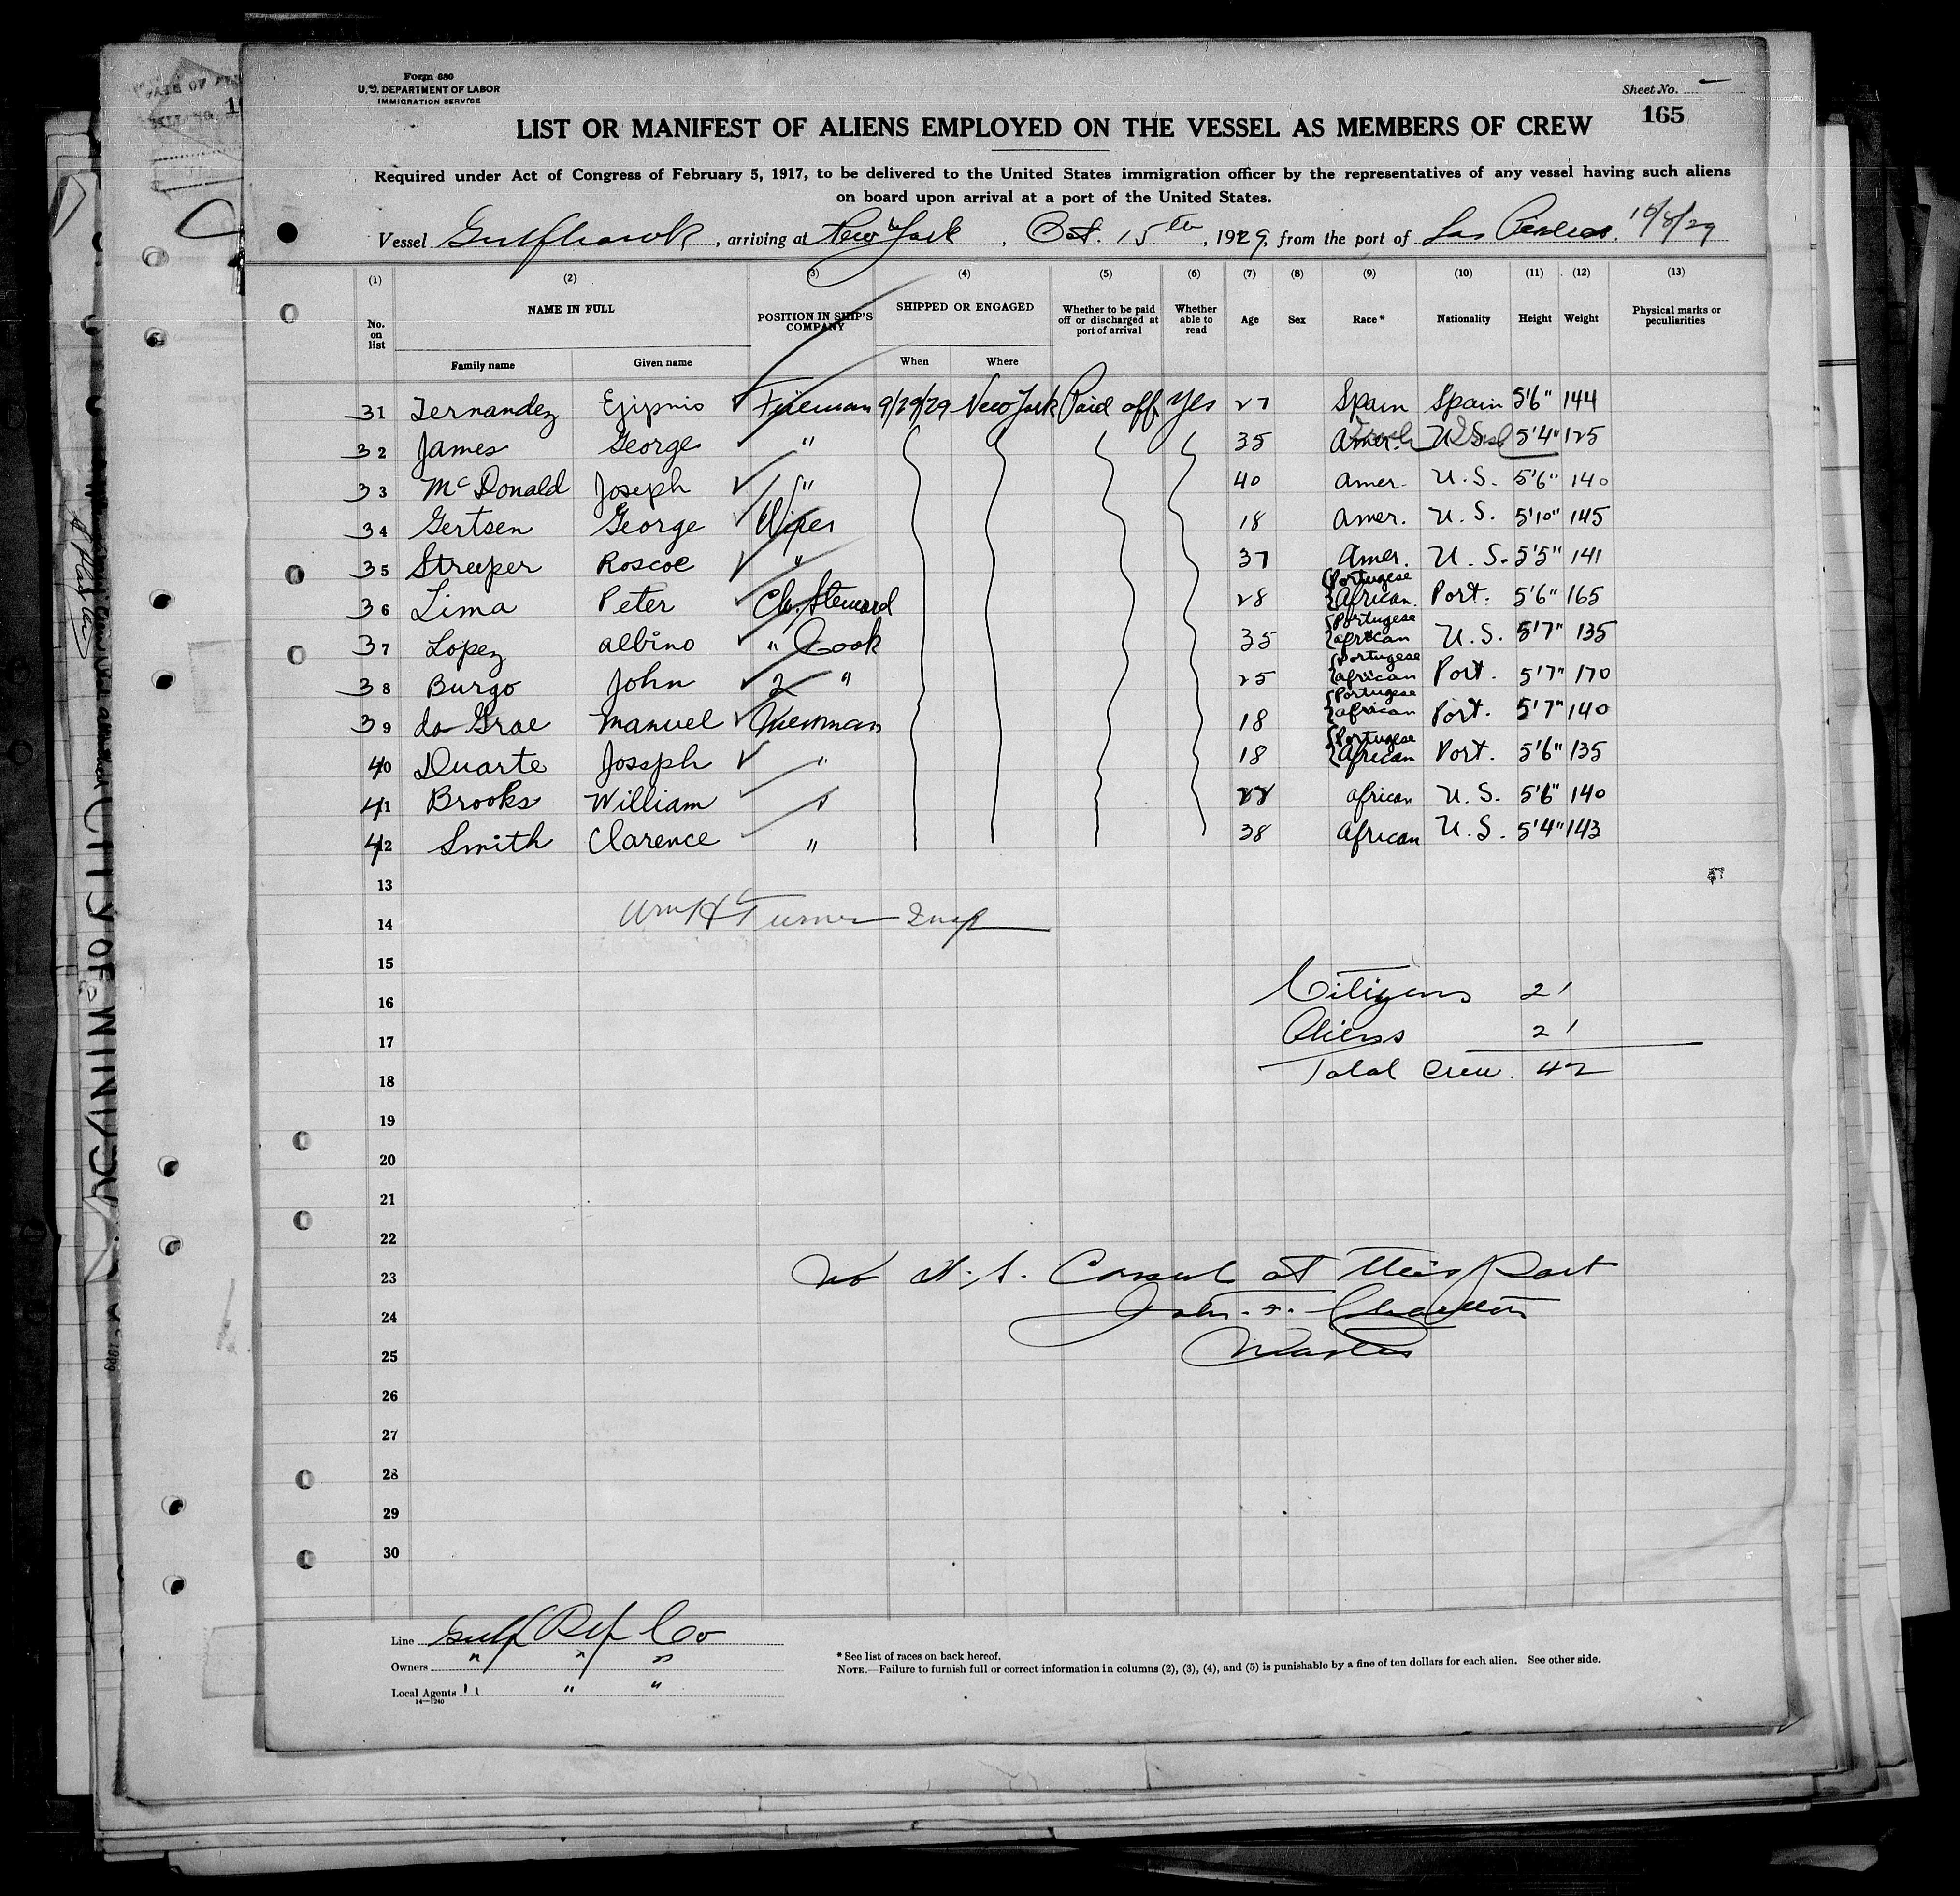 Form 680
U.S. DEPARTMENT OF LABOR
IMMIGRATION SERVICE
Sheet No.
165
LIST OR MANIFEST OF ALIENS EMPLOYED ON THE VESSEL AS MEMBERS OF CREW
Required under Act of Congress of February 5, 1917, to be delivered to the United States immigration officer by the representatives of any vessel having such aliens
on board upon arrival at a port of the United States.
Vessel Gulfhawk, arriving at New York, Oct. 15th, 1929, from the port of Las Piedras. 10/8/29
(1) (2) (3) (4) (5) (6) (7) (8) (9) (10) (11) (12) (13)
No. on list NAME IN FULL POSITION IN SHIP'S COMPANY SHIPPED OR ENGAGED Whether to be paid off or discharged at port of arrival Whether able to read Age Sex Race* Nationality Height Weight Physical marks or peculiarities
Family name Given name When Where
31 Fernandez Fireman 9/29/29 New York Paid off Yes 27 Spain Spain 5'6" 144
32 James George " 35 Amer. U.S. 5'4" 125
33 McDonald Joseph " 40 Amer. U.S. 5'6" 140
34 Gertsen George Wiper 18 Amer. U.S. 5'10" 145
35 Streeper Roscoe " 37 Amer. U.S. 5'5" 141
36 Lima Peter Ch. Steward 28 Portugese African. Port. 5'6" 165
37 Lopez Albino " Cook 35 Portugese african U.S. 5'7" 135
38 Burgo John 2 " 25 Portugese african Port. 5'7" 170
39 da Grae Manuel Messman 18 Portugese african Port. 5'7" 140
40 Duarte Joseph " 18 Portugese African Port. 5'6" 135
41 Brooks William " african U.S. 5'6" 140
42 Smith Clarence " 38 African U.S. 5'4" 143
13
14 Wm H Turner Insp
15
16 Citizens 21
17 Aliens 21
18 Total Crew. 42
19
20
21
22
23 No U.S. Consul at this Port
24 John
25 Master
26
27
28
29
30
Line Gulf Ref Co
Owners " " "
Local Agents " " "
14—1240
* See list of races on back hereof.
NOTE.—Failure to furnish full or correct information in columns (2), (3), (4), and (5) is punishable by a fine of ten dollars for each alien. See other side.
CITY OF